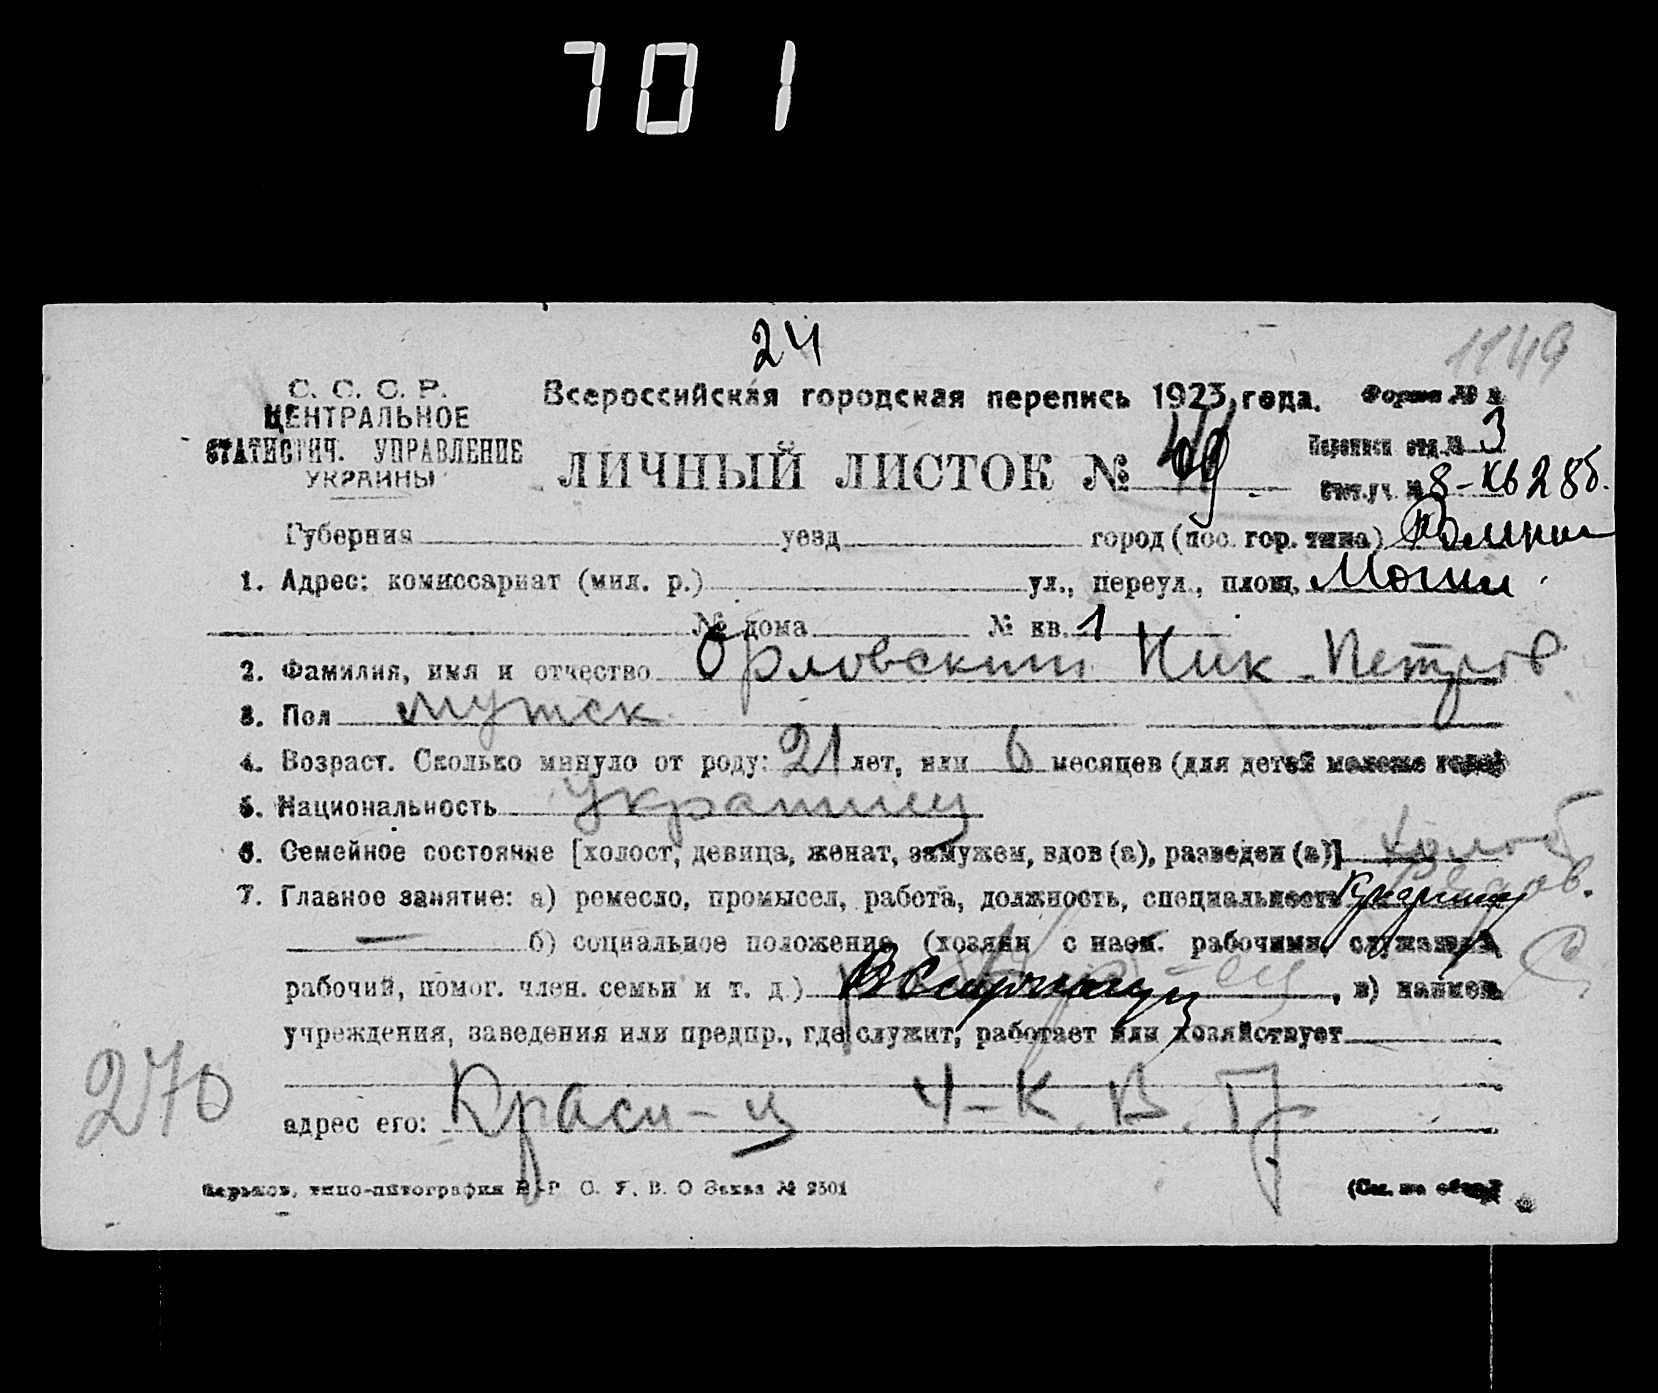 701
24
1149
С. С. С. Р.
ЦЕНТРАЛЬНОЕ
СТАТИСТИЧ. УПРАВЛЕНИЕ
УКРАИНЫ
Всероссийская городская перепись 1923 года.
Форма № 
Переписн отд. № 3
ЛИЧНЫЙ ЛИСТОК №
Счет.уч. № 8 - кв 28б.
Губерния уезд город (пос. гор. типа)
1. Адрес: комиссариат (мил. р.) ул., переул., площ.
№ дома № кв. 1
2. Фамилия, имя и отчество Орловский Ник Петров
3. Пол мужск
4. Возраст. Сколько минуло от роду: 21 лет, или 6 месяцев (для детей моложе года)
5. Национальность украинец
6. Семейное состояние [холост, девица, женат, замужем, вдов (а), разведен (а)] холост
7. Главное занятие: а) ремесло, промысел, работа, должность, специальность
б) социальное положение (хозяин с наем. рабочими, служащий,
рабочий, помог. член. семьи и т. д.) , в) наимен.
учреждения, заведения или предпр., где служит, работает или хозяйствует
270
адрес его: Красн-ц 4-К. В. П
Харьков, типо-литография В-Р С. У. В. О Заказ № 2501
(См. на обор.)